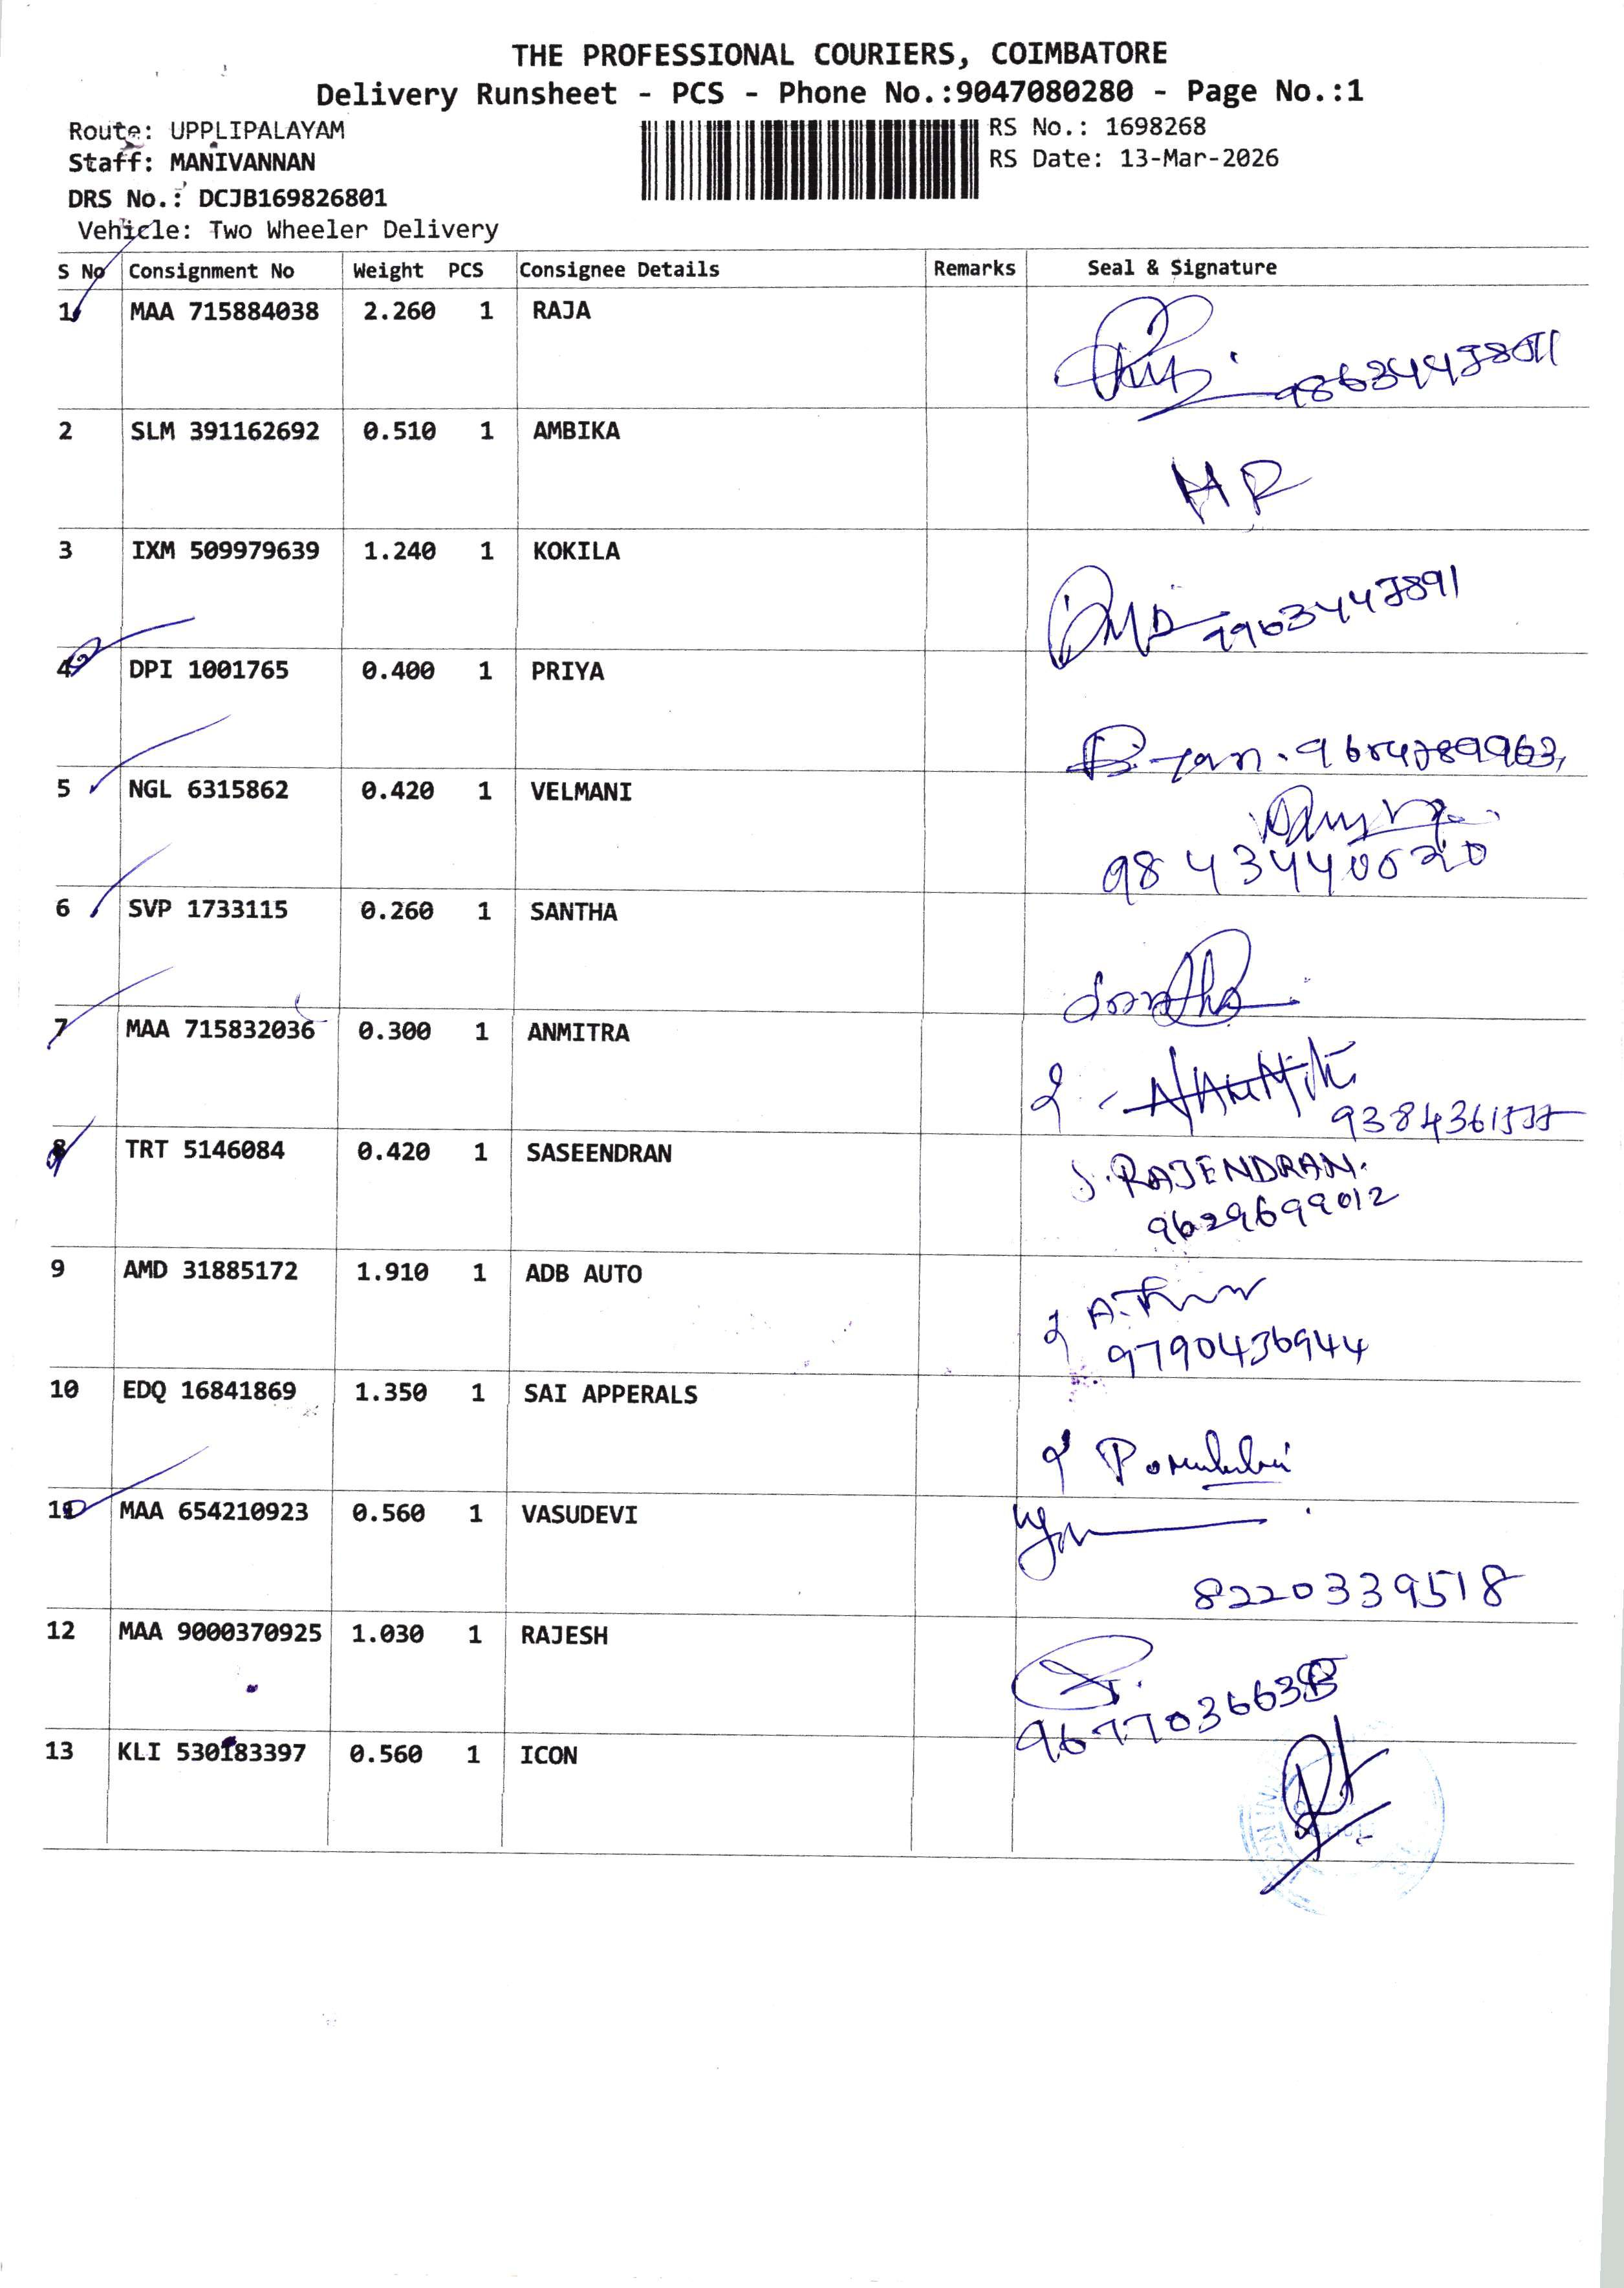 THE PROFESSIONAL COURIERS, COIMBATORE
Delivery Runsheet - PCS - Phone No.:9047080280 - Page No.:1
Route: UPPLIPALAYAM
RS No.: 1698268
Staff: MANIVANNAN
RS Date: 13-Mar-2026
DRS No.: DCJB169826801
Vehicle: Two Wheeler Delivery
S No Consignment No Weight PCS Consignee Details Remarks Seal & Signature
1 MAA 715884038 2.260 1 RAJA
2 SLM 391162692 0.510 1 AMBIKA
HR
3 IXM 509979639 1.240 1 KOKILA
9963447891
4 DPI 1001765 0.400 1 PRIYA
5 NGL 6315862 0.420 1 VELMANI
6 SVP 1733115 0.260 1 SANTHA
Santha
7 MAA 715832036 0.300 1 ANMITRA
8 TRT 5146084 0.420 1 SASEENDRAN
J. RAJENDRAN.
9629699012
9 AMD 31885172 1.910 1 ADB AUTO
9790436944
10 EDQ 16841869 1.350 1 SAI APPERALS
11 MAA 654210923 0.560 1 VASUDEVI
8220339518
12 MAA 9000370925 1.030 1 RAJESH
13 KLI 530183397 0.560 1 ICON